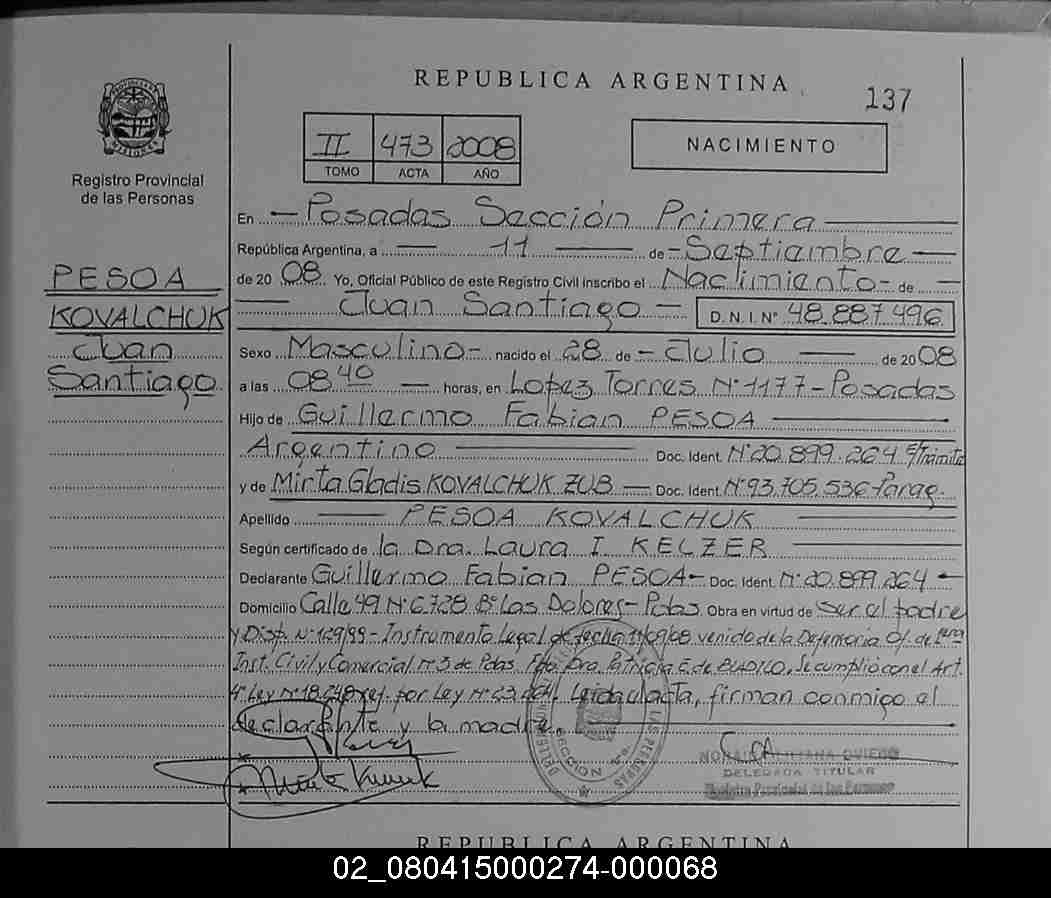 REPUBLICA ARGENTINA
137
II 473 2008
TOMO ACTA AÑO
NACIMIENTO
PROVINCIA DE MISIONES
Registro Provincial
de las Personas
PESOA
KOVALCHUK
Juan
Santiago
En Posadas Sección Primera
República Argentina, a 11 de Septiembre
de 2008 Yo, Oficial Público de este Registro Civil inscribo el Nacimiento de
Juan Santiago D.N.I. Nº 48.887.496
Sexo Masculino nacido el 28 de Julio de 2008
a las 08:40 horas, en Lopez Torres Nº 1177 - Posadas
Hijo de Guillermo Fabian PESOA
Argentino Doc. Ident. Nº 20.899.264 E/Trámite
y de Mirta Gladis KOVALCHUK ZUB Doc. Ident. Nº 93.705.536 Parag.
Apellido PESOA KOVALCHUK
Según certificado de la Dra. Laura I. KELZER
Declarante Guillermo Fabian PESOA Doc. Ident. Nº 20.899.264
Domicilio Calle 49 Nº 6.728 Bº Las Dolores - Pdas Obra en virtud de Ser el padre
y Disp. Nº 129/99 - Instrumento Legal de fecha 11/09/08 venido de la Defensoria Of. de 1era
Inst. Civil y Comercial nº 3 de Pdas. Fdo. Dra. Patricia E. de Se cumplió con el Art.
4º Ley Nº 18.248 ref. por Ley Nº Leida el acta, firman conmigo el
declarante y la madre.
DE LAS PERSONAS
SECCION 1a.
NORA LILIANA OVIEDO
DELEGADA TITULAR
Registro Provincial de las Personas
REPUBLICA ARGENTINA
02_080415000274-000068